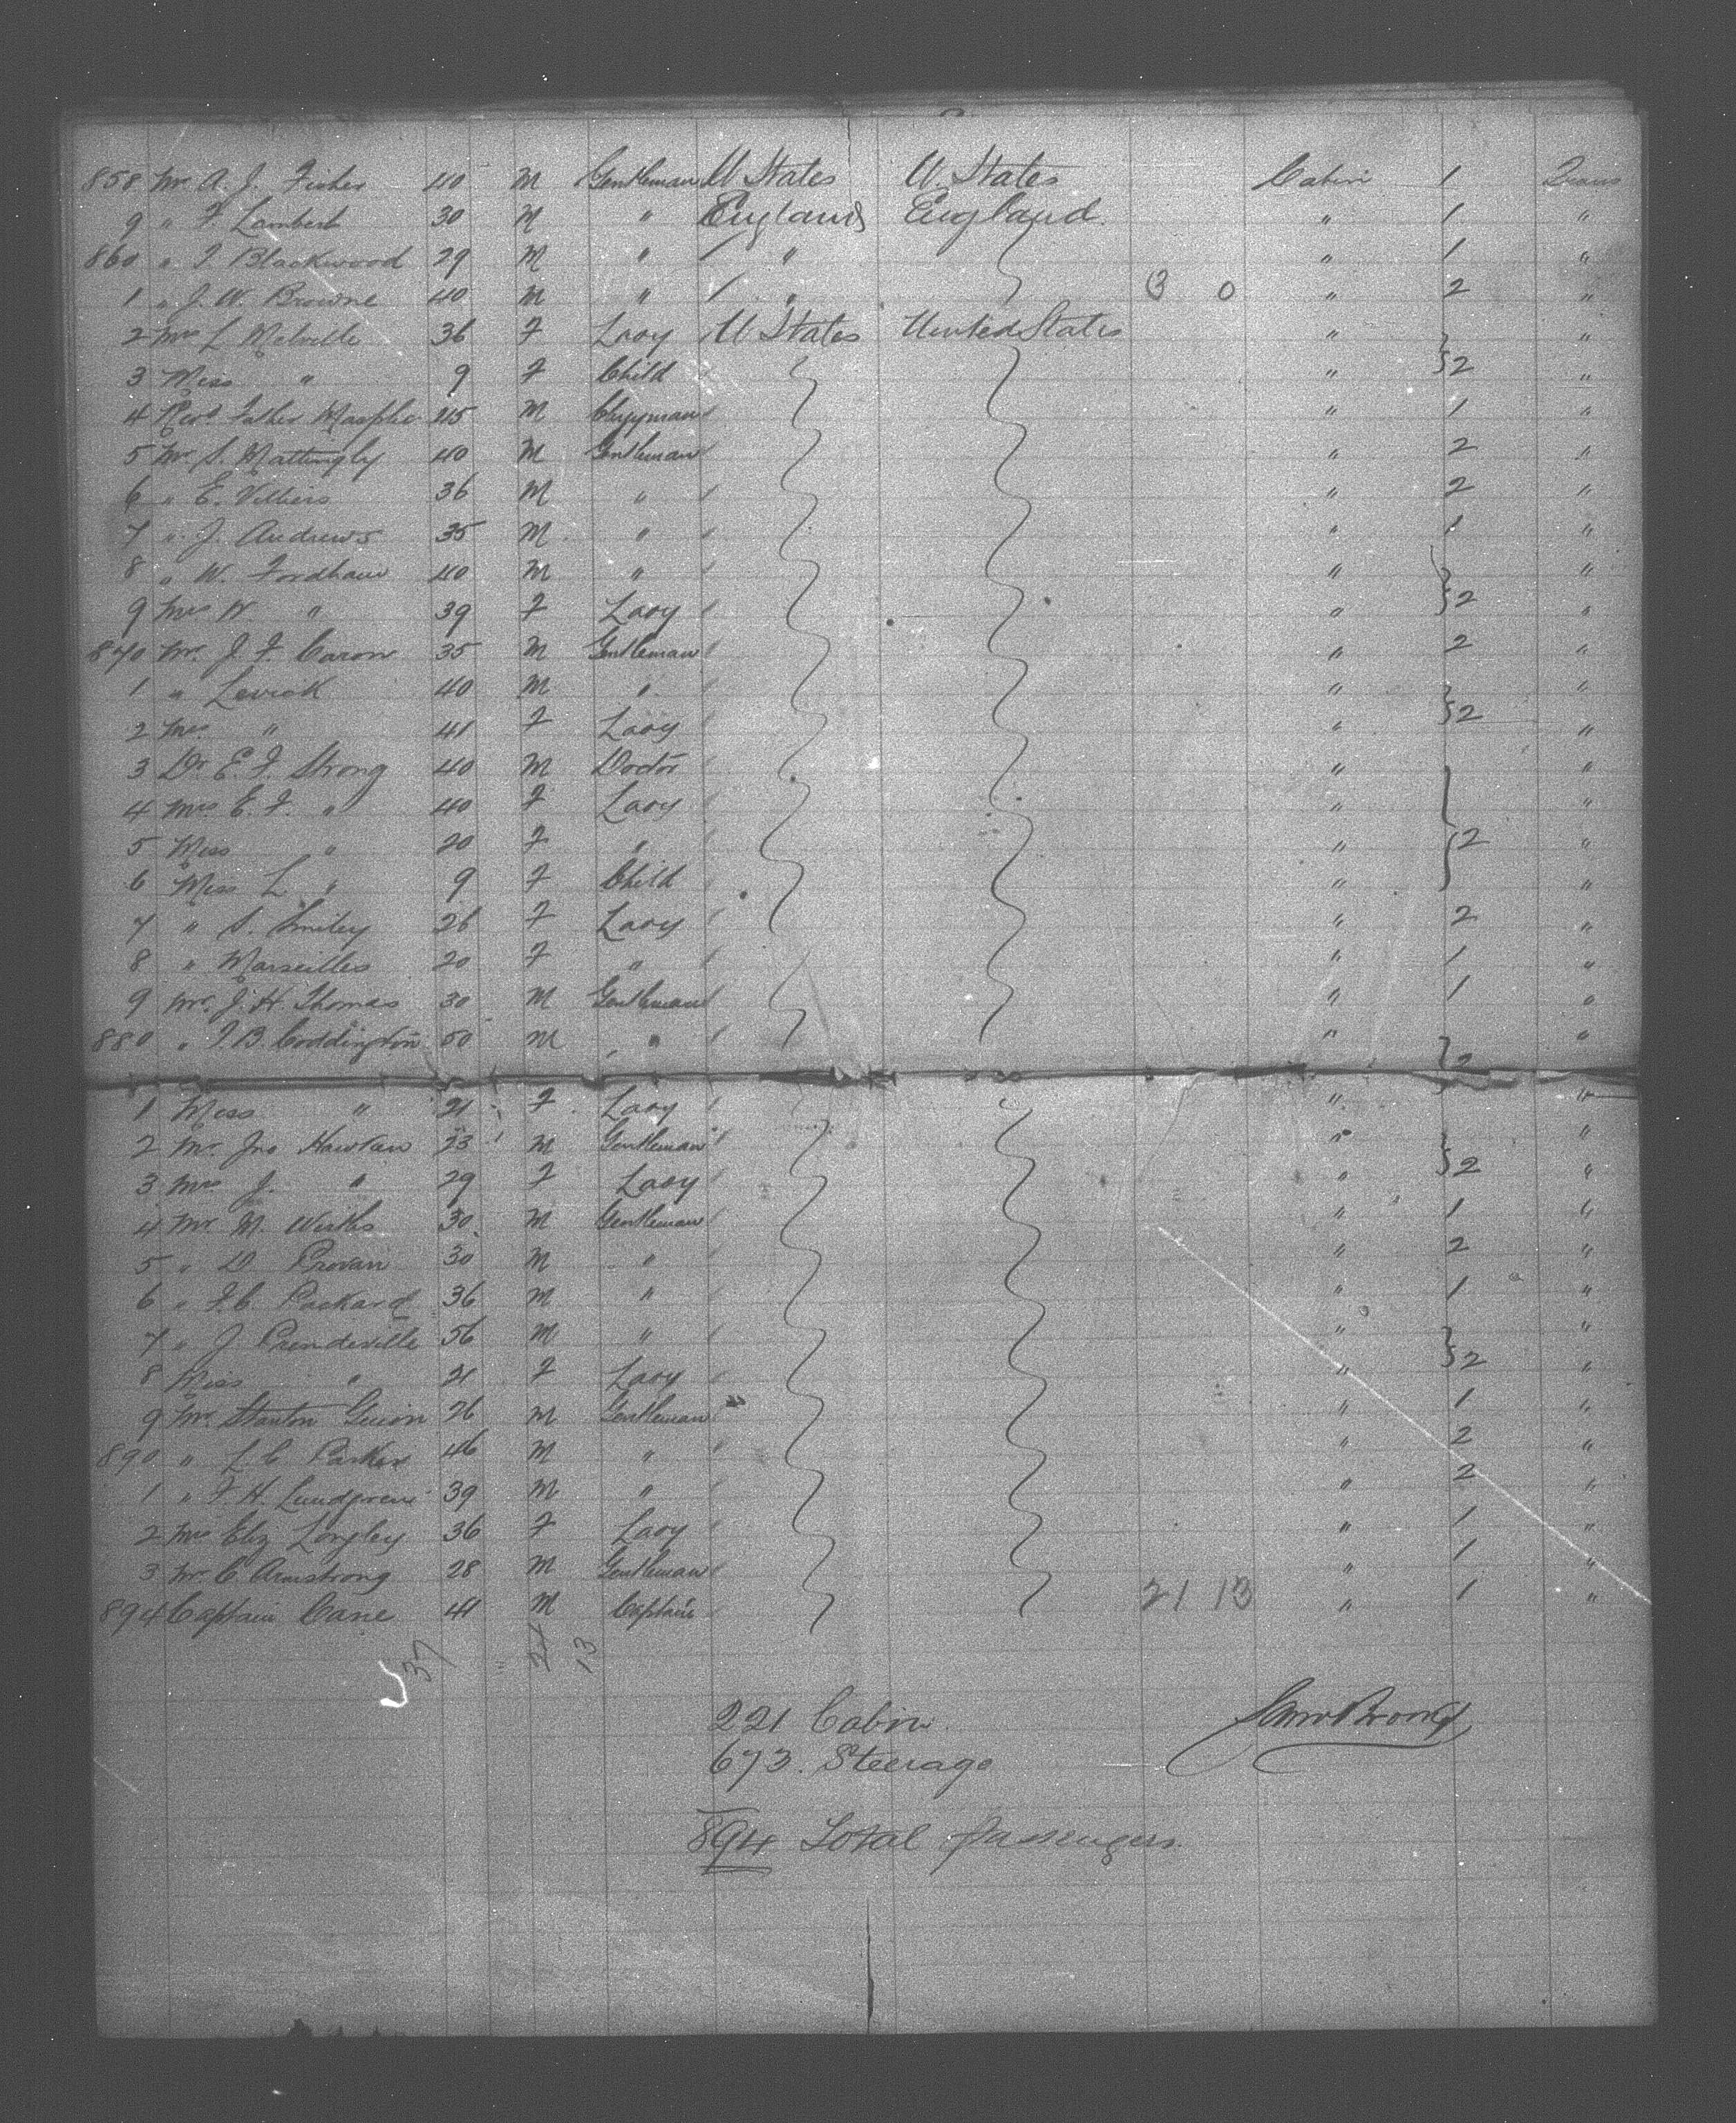 858 Mr. A. J. Fisher 40 M Gentleman U States U. States Cabin 1 Trans
9 " F. Lambert 30 M " England England " 1 "
860 " T. Blackwood 29 M " / " " 1 "
1 " J. W. Browne 40 M " / " 3 0 " 2 "
2 Mrs L Melville 36 F Lady U States United States " "
3 Miss " 9 F Child " } 2 "
4 Revd Father 45 M Clergyman " 1 "
5 Mr S. Mattingly 40 M Gentleman " 2 "
6 " E. Villiers 36 M " " 2 "
7 " J. Andrews 35 M " " 1 "
8 " W. Fordham 40 M " " "
9 Mrs W " 39 F Lady " } 2 "
870 Mr. J. F. Caron 35 M Gentleman " 2 "
1 " Levick 40 M " " "
2 Mrs " 41 F Lady " } 2 "
3 Dr E. F. Strong 40 M Doctor " "
4 Mrs E. F. " 40 F Lady " "
5 Miss " 20 F " " } 2 "
6 Miss L " 9 F Child " "
7 " S. Smiley 26 F Lady " 2 "
8 " Marseilles 20 F " " 1 "
9 Mr. J. H. Thomas 30 M Gentleman " 1 "
880 " T. B. Coddington 50 M " " } 2 "
1 Miss " 21 F Lady " "
2 Mr. Jno 33 M Gentleman " "
3 Mrs J. " 29 F Lady " } 2 "
4 Mr M. Wirths 30 M Gentleman " 1 "
5 " D Provan 30 M " " 2 "
6 " F. C. Packard 36 M " " 1 "
7 " J Prendeville 56 M " " "
8 Miss " 21 F Lady " } 2 "
9 Mr. Stanton Guion 26 M Gentleman " 1 "
890 " L. C Parker 46 M " " 2 "
1 " F. H. Lundgren 39 M " " 2 "
2 Mrs Eliz Longley 36 F Lady " 1 "
3 Mr. C Armstrong 28 M Gentleman " 1 "
894 Captain Cane 41 M Captain 21 13 " 1 "
37 24 13
221 Cabin.
673. Steerage
894 Total passengers.